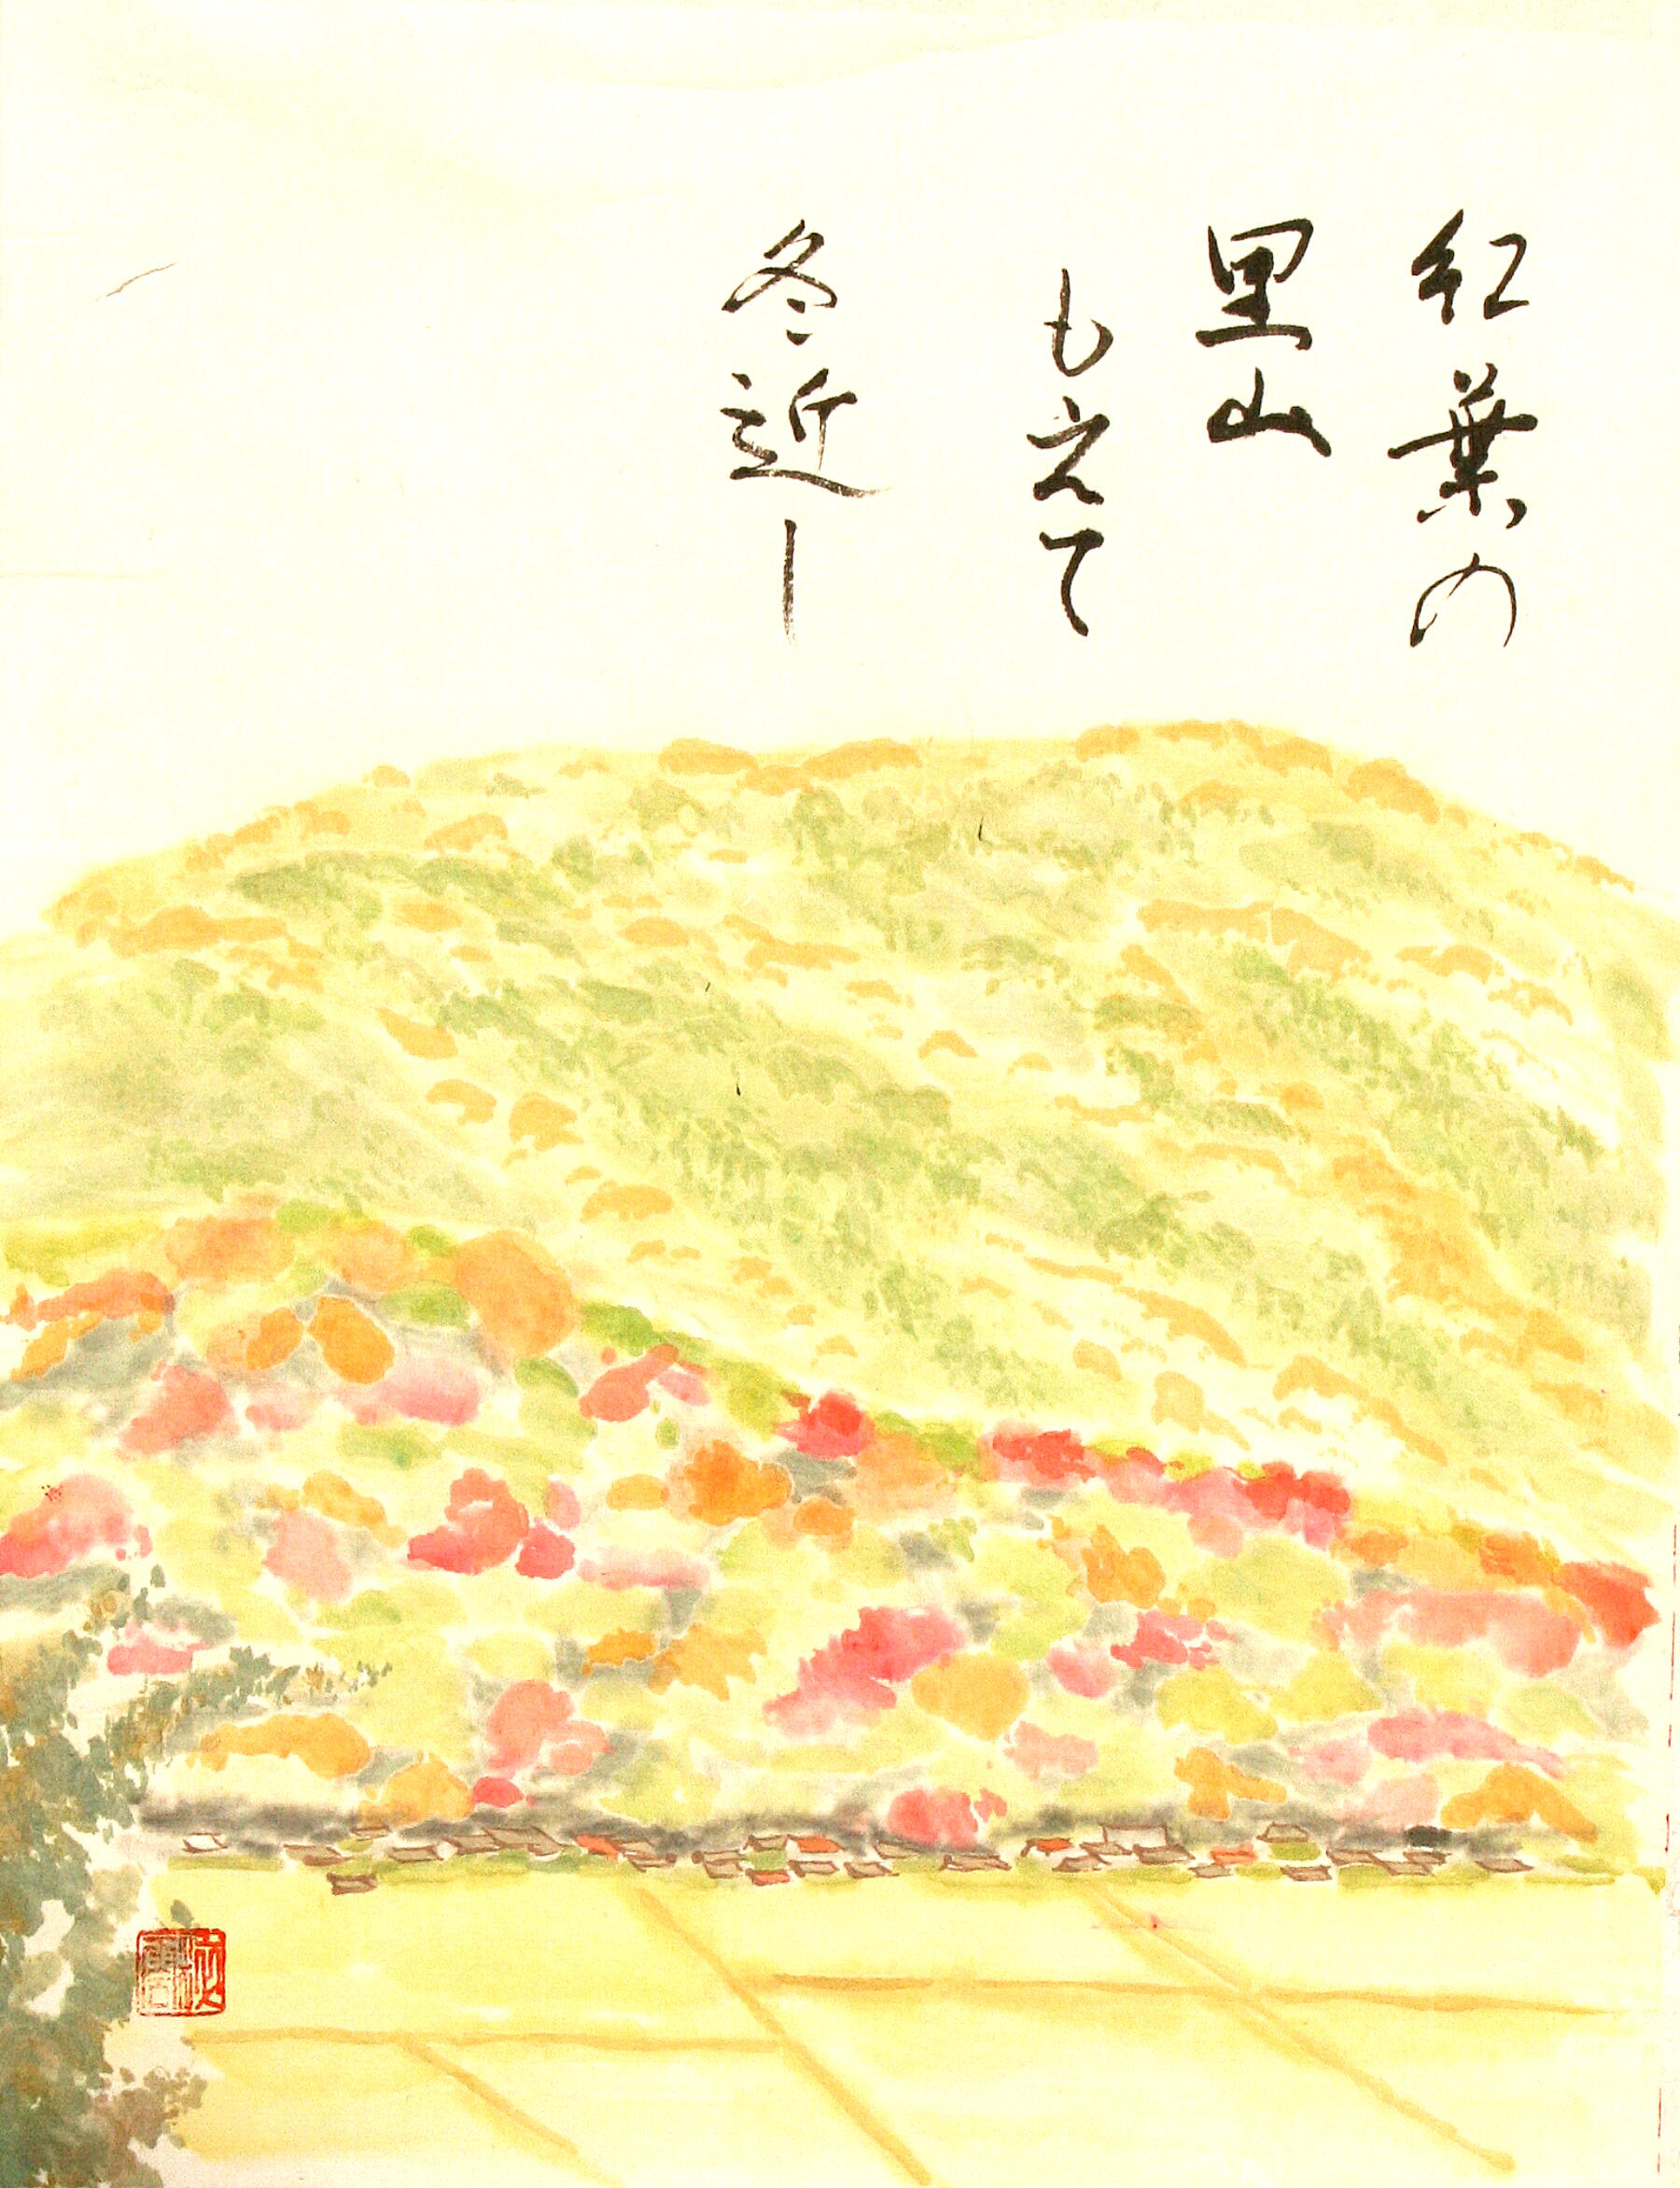 紅葉の
里山
もえて
冬近し